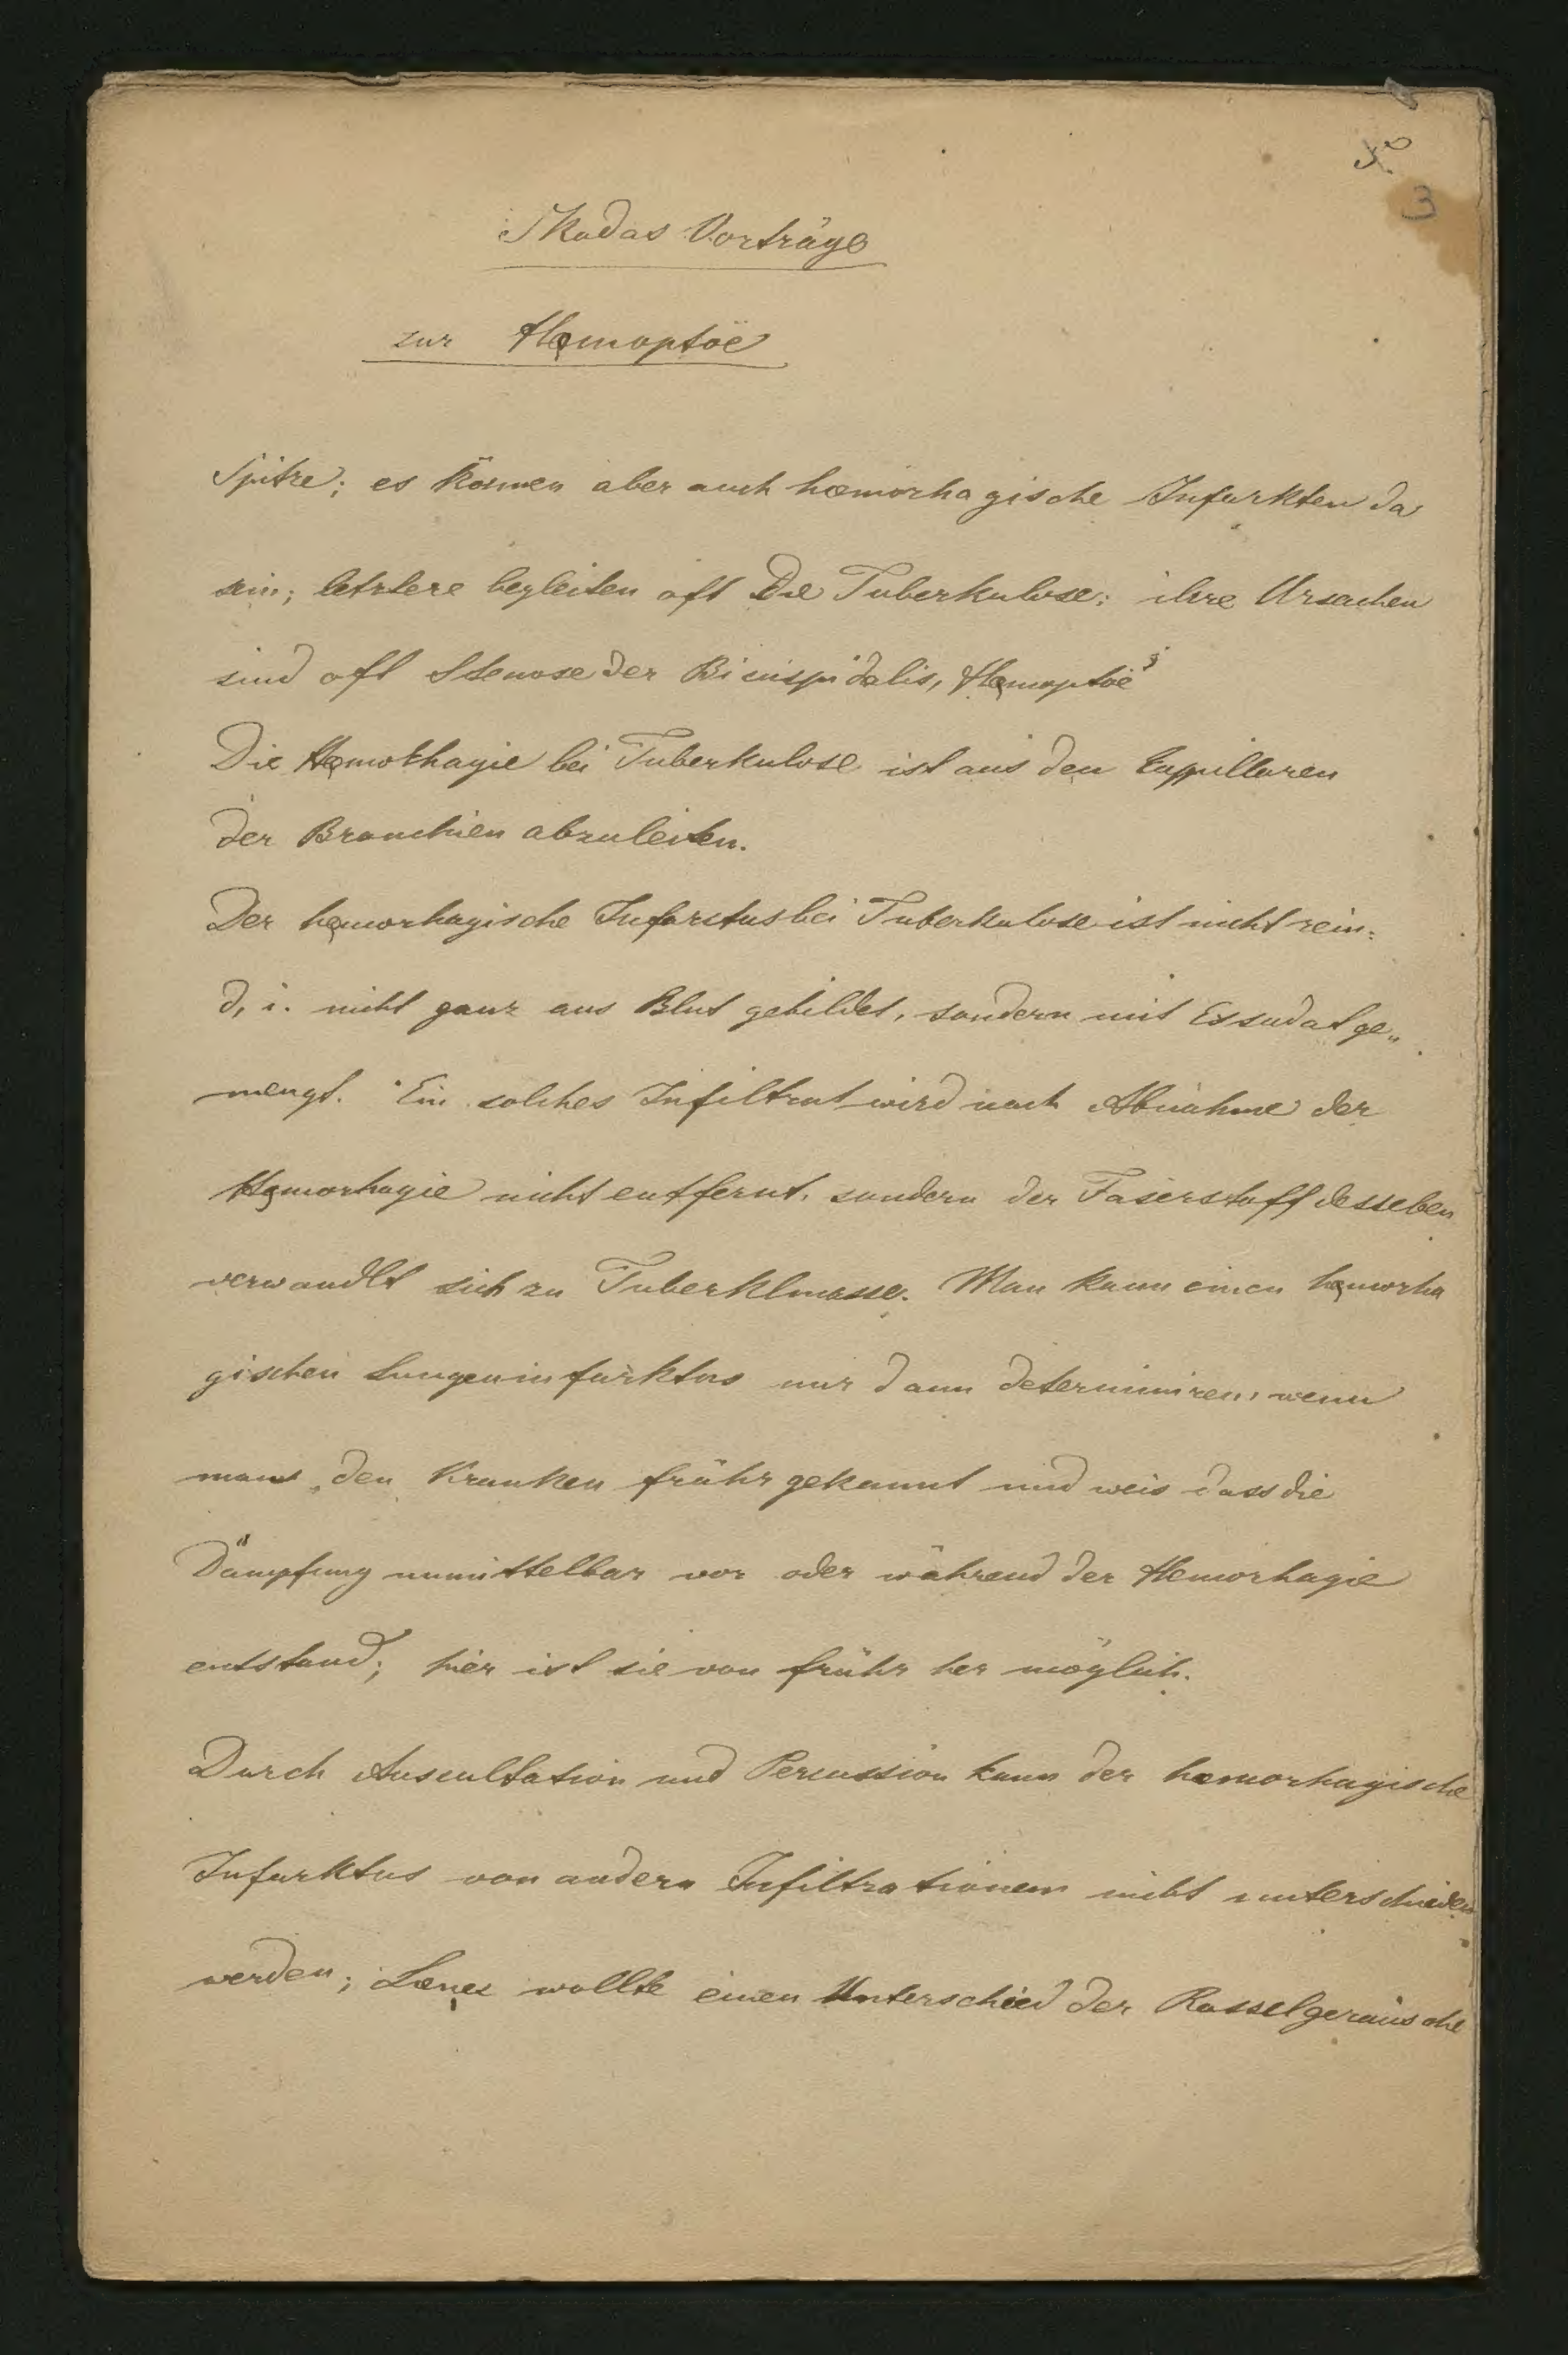 3
Skodas Vorträge
zur Hęmoptöe
Spitze; es können aber auch hæmorhagische Infarkten da
sein; letztere begleiten oft Die Tuberkulose; ihre Ursachen
sind oft Stenose der Bicuspidalis, Hęmoptöe
Die Hęmorhagie bei Tuberkulose ist aus den Cappillaren
der Bronchien abzuleiten.
Der hęmorhagische Infarctus bei Tuberkulose ist nicht rein:
d, i. nicht ganz aus Blut gebildet, sondern mit Exsudat ge„
mengt. Ein solches Infiltrat wird nach Abnahme der
Hęmorhagie nicht entfernt, sondern der Faserstoff desseben
verwandlt sich zu Tuberklmasse. Man kann einen hęmorha
gischen Lungeninfarktus nur dann determiniren, wenn
man den Kranken frühr gekannt und weis dass die
Dämpfung unmittelbar vor oder während der Hemorhagie
entstand; hier ist sie von frühr her möglich.
Durch Auscultation und Percussion kann der hæmorhagische
Infarktus von andern Infiltrationen nicht unterschieden
werden; wollte einen Unterschied der Rasselgeräusche